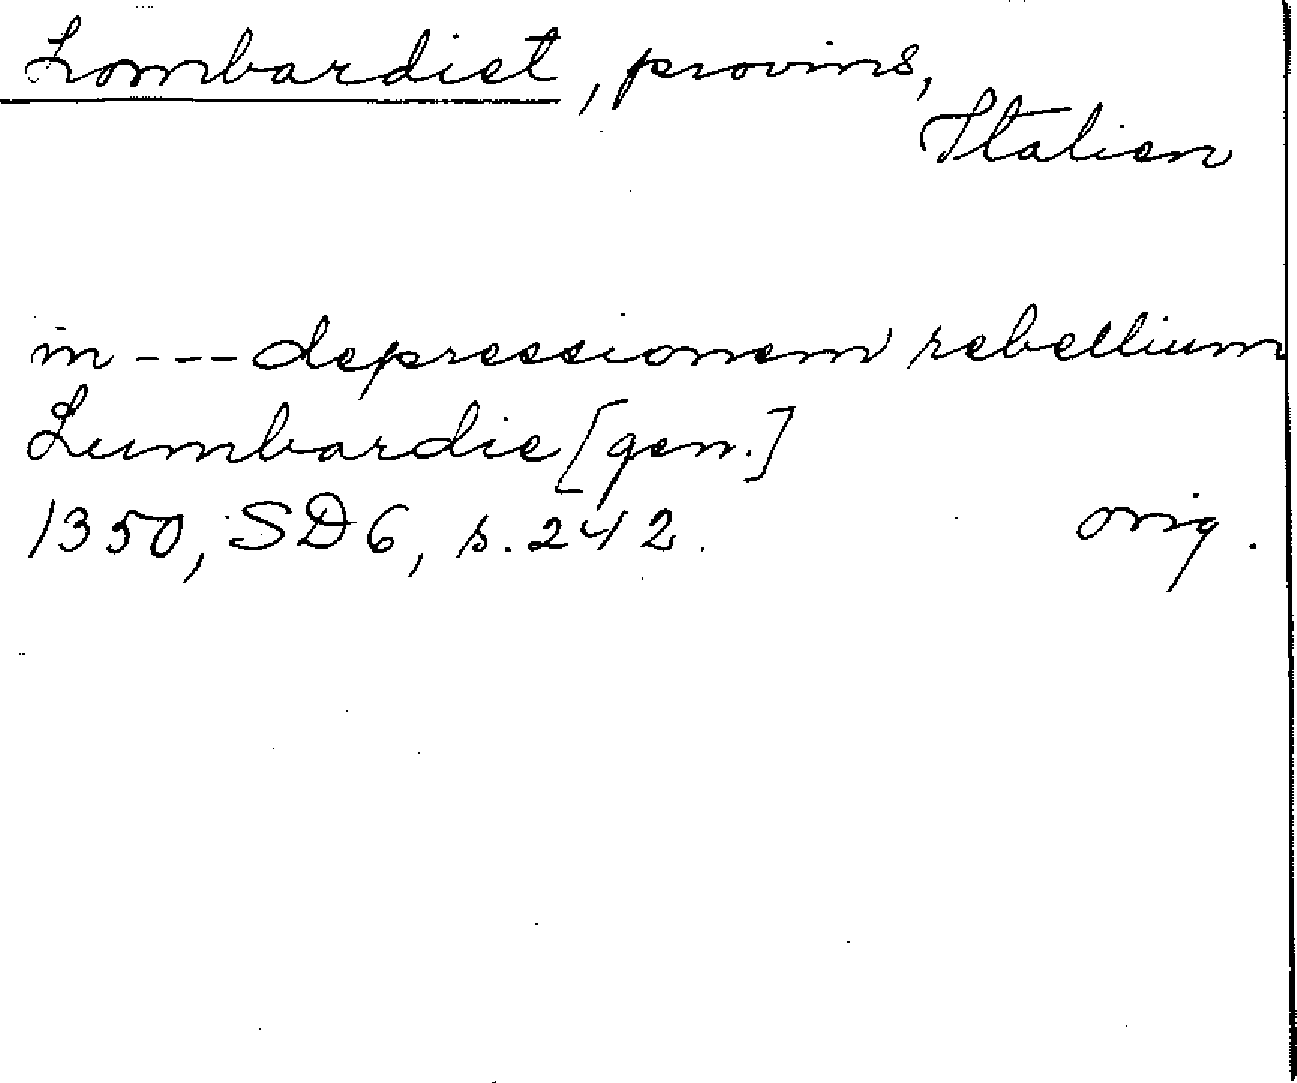 Lombardiet, provins,
Italien
in --- depressionem rebellium
Lumbardie [gen.]
1350, SD6, s. 242. orig.